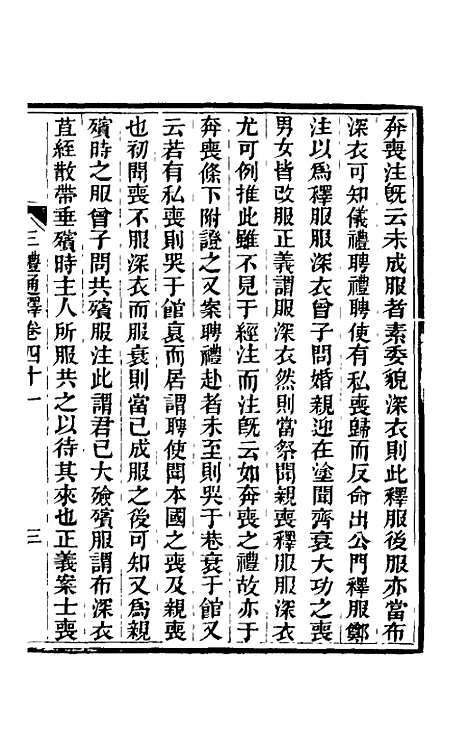 奔喪注旣云未成服者素委貌深衣則此釋服後服亦當布
深衣可知儀禮聘禮聘使有私喪歸而反命出公門釋服鄭
注以爲釋服服深衣曾子問婚親迎在塗聞齊衰大功之喪
男女皆改服正義謂服深衣然則當祭聞親喪釋服服深衣
尤可例推此雖不見于經注而注旣云如奔喪之禮故亦于
奔喪條下附證之又案聘禮赴者未至則哭于巷衰于館又
云若有私喪則哭于館衰而居謂聘使聞本國之喪及親喪
也初聞喪不服深衣而服衰則當已成服之後可知又爲親
殯時之服曾子問共殯服注此謂君已大殮殯服謂布深衣
苴絰散帶垂殯時主人所服共之以待其來也正義案士喪
三禮通釋卷四十一
三